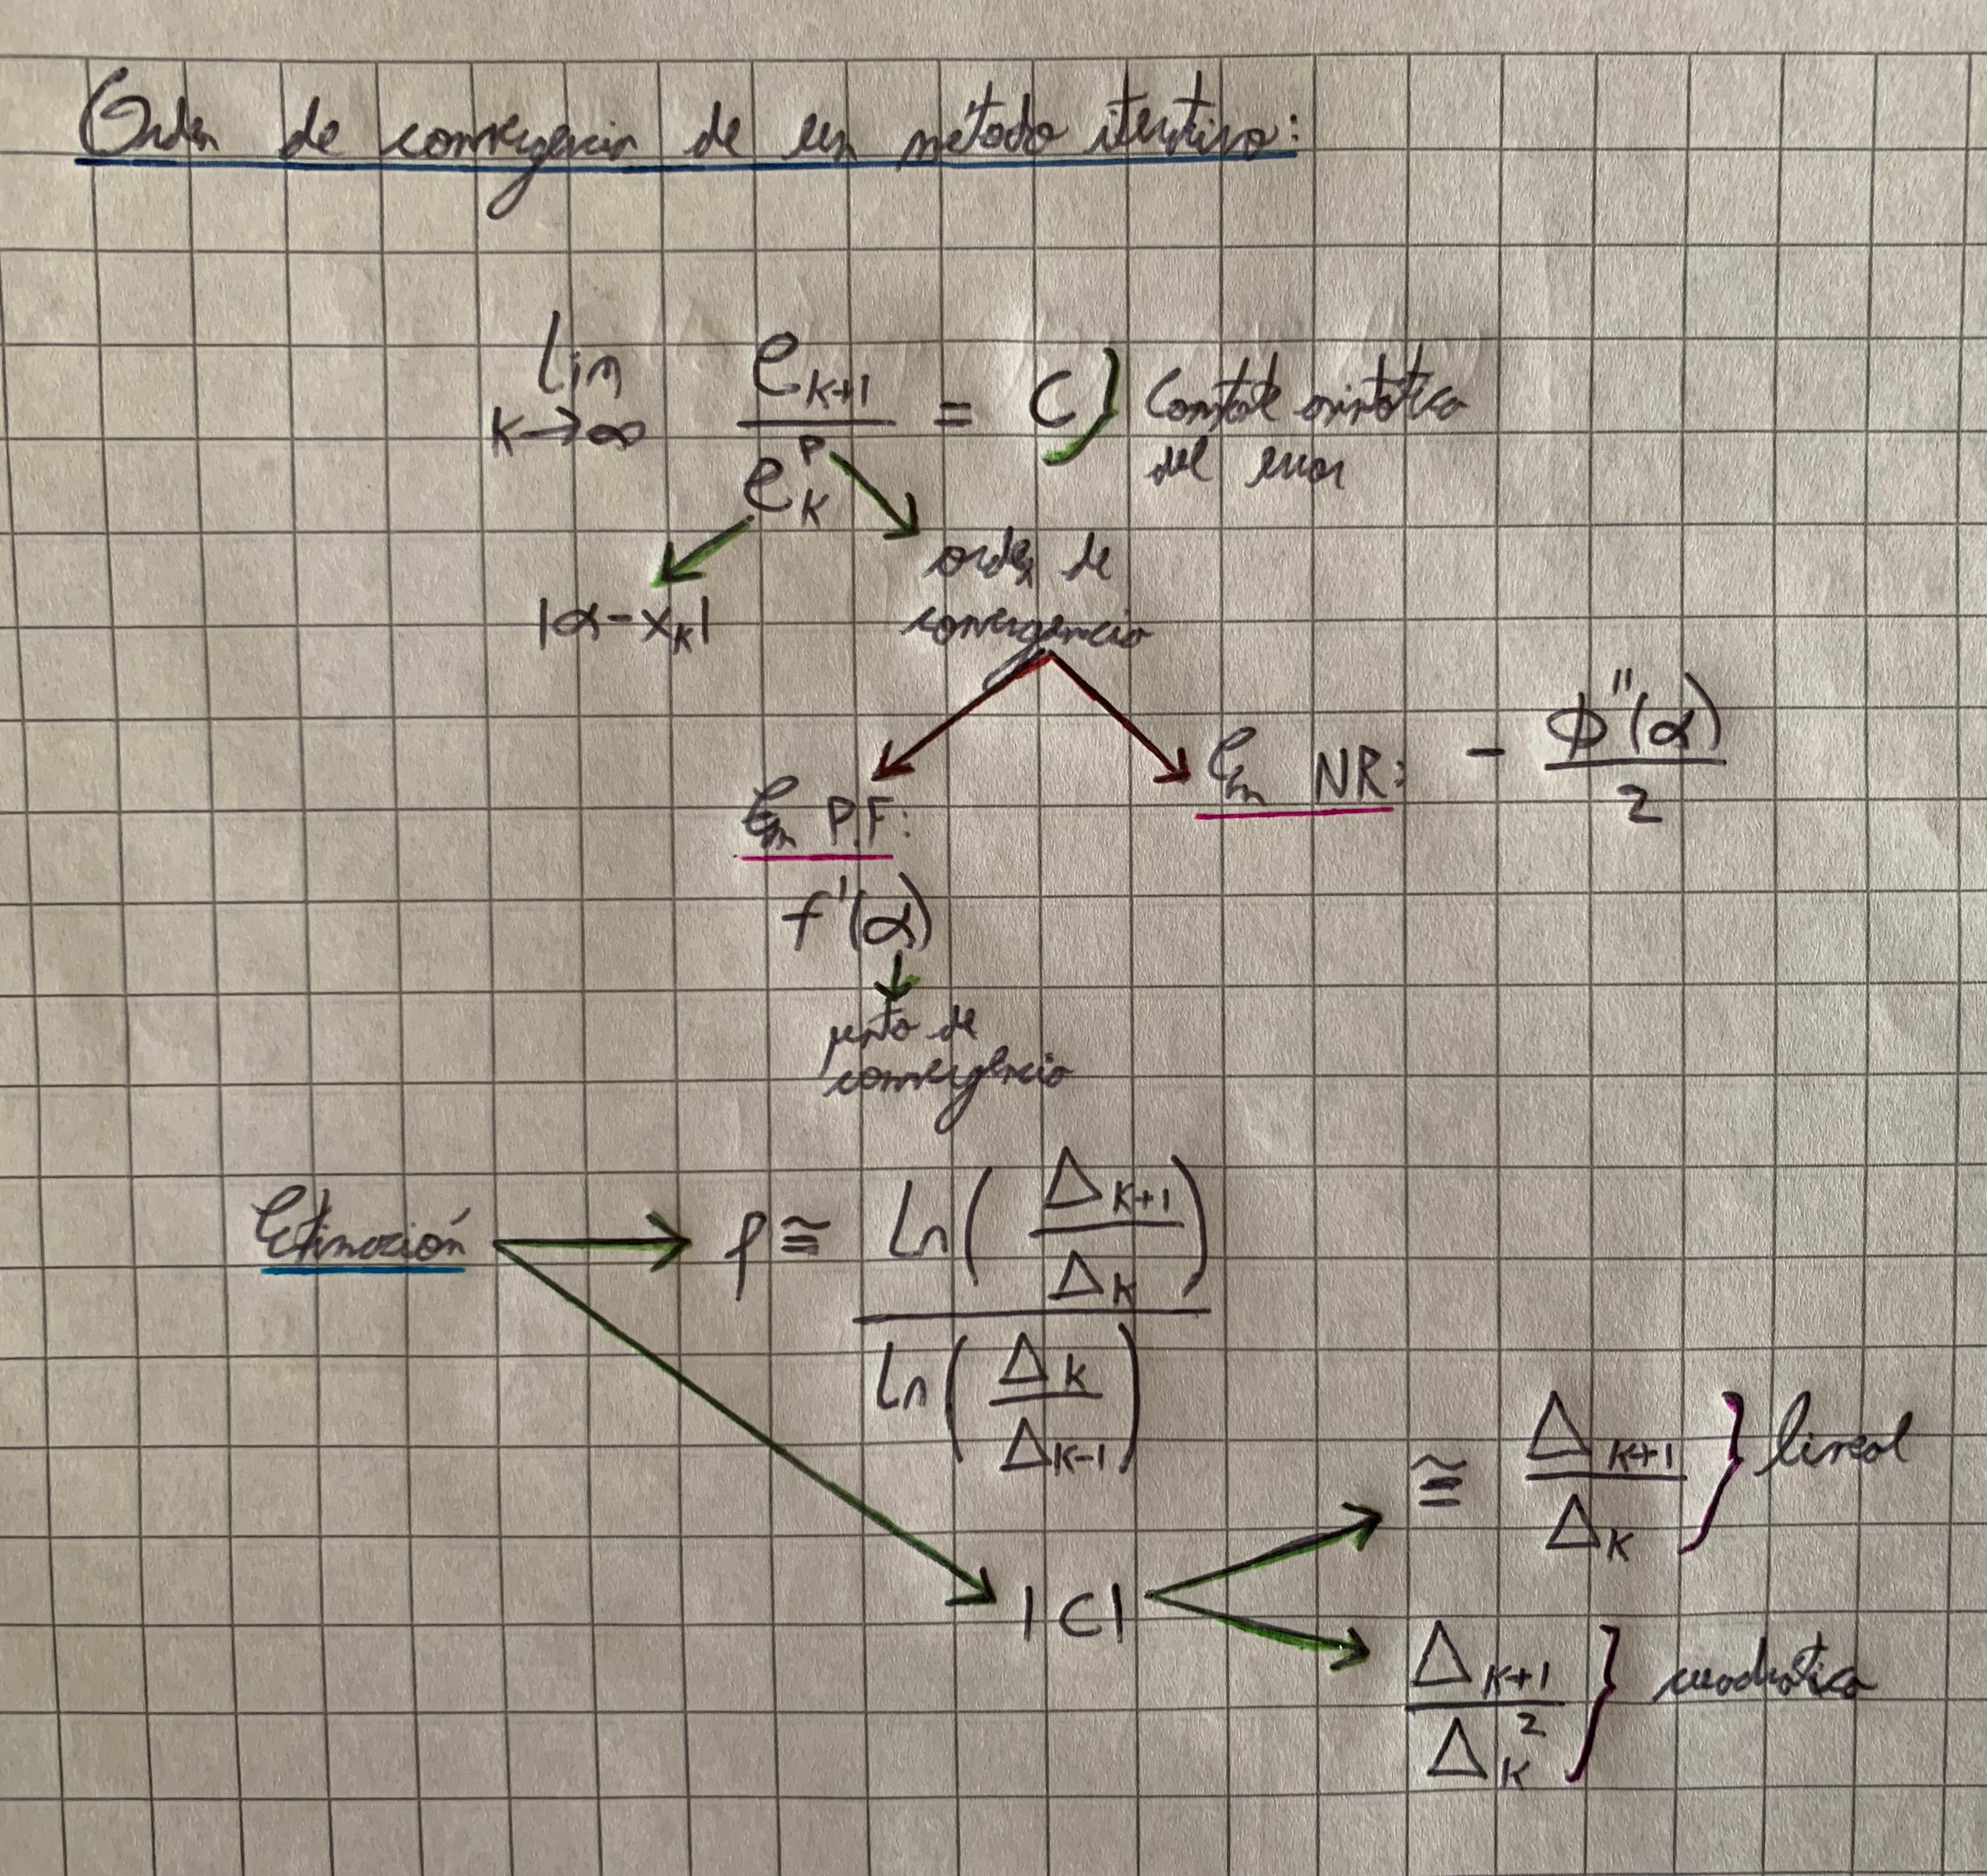 Orden de convergencia de un método iterativo:
lim k→∞ e_{k+1} / e_k^p = C } Constante asintótica
del error
|α - x_k|
orden de
convergencia
En P.F:
En NR: - Φ''(α) / 2
f'(α)
punto de
convergencia
Estimación → p ≅ Ln( Δ_{k+1} / Δ_k ) / Ln( Δ_k / Δ_{k-1} )
|C|
≅ Δ_{k+1} / Δ_k } lineal
Δ_{k+1} / Δ_k^2 } cuadrática